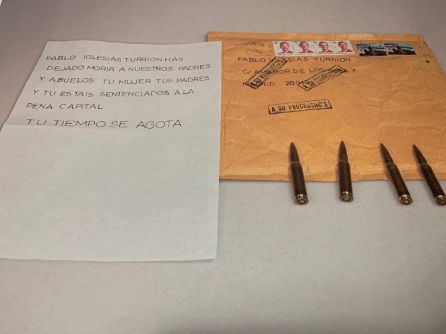 PABLO IGLESIAS TURRION HAS
DEJADO MORIR A NUESTROS PADRES
Y ABUELOS TU MUJER TUS PADRES
Y TU ESTAIS SENTENCIADOS A LA
PENA CAPITAL
TU TIEMPO SE AGOTA
PABLO IGLESIAS TURRION
C/
DE LOS
7
MADRID